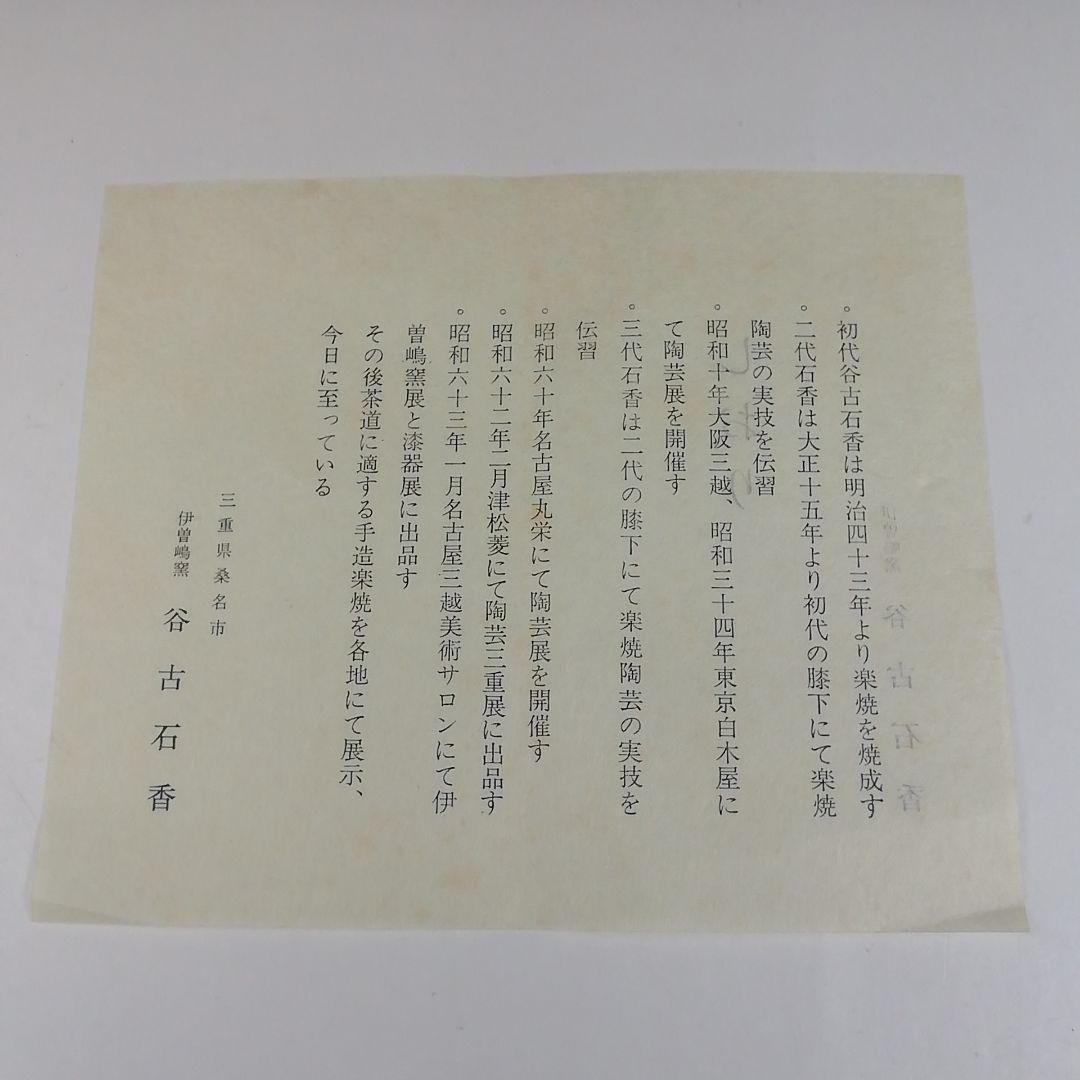 。初代谷古石香は明治四十三年より楽焼を焼成す
。二代石香は大正十五年より初代の膝下にて楽焼
陶芸の実技を伝習
。昭和十年大阪三越、昭和三十四年東京白木屋に
て陶芸展を開催す
。三代石香は二代の膝下にて楽焼陶芸の実技を
伝習
。昭和六十年名古屋丸栄にて陶芸展を開催す
。昭和六十二年二月津松菱にて陶芸三重展に出品す
。昭和六十三年一月名古屋三越美術サロンにて伊
曽嶋窯展と漆器展に出品す
その後茶道に適する手造楽焼を各地にて展示、
今日に至っている
三重県桑名市
伊曽嶋窯 谷古石香